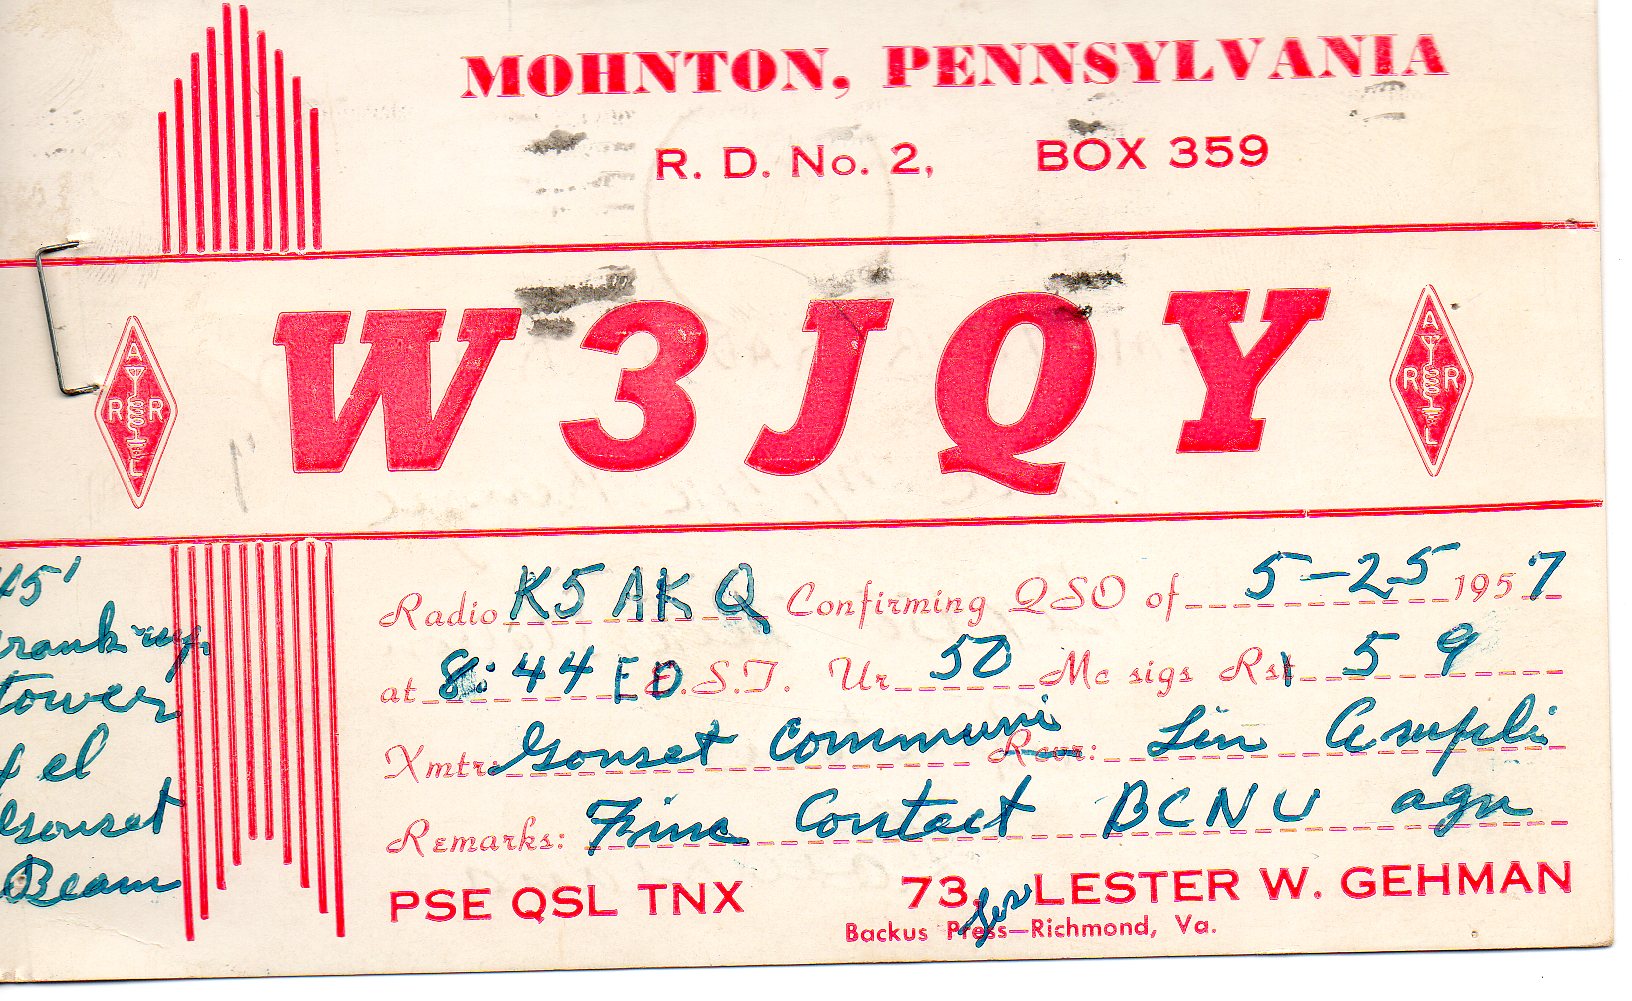 MOHNTON, PENNSYLVANIA
R. D. No. 2, BOX 359
W3JQY
A R R L
A R R L
45'
tower
el
Gonset
Beam
Radio K5AKQ Confirming QSO of 5-25 1957
at 8:44 ED E.S.T. Ur 50 Mc sigs Rst 59
Xmtr: Gonset Communi Rcvr: Lin Ampli
Remarks: Fine Contact BCNU agn
PSE QSL TNX 73, Les LESTER W. GEHMAN
Backus Press—Richmond, Va.